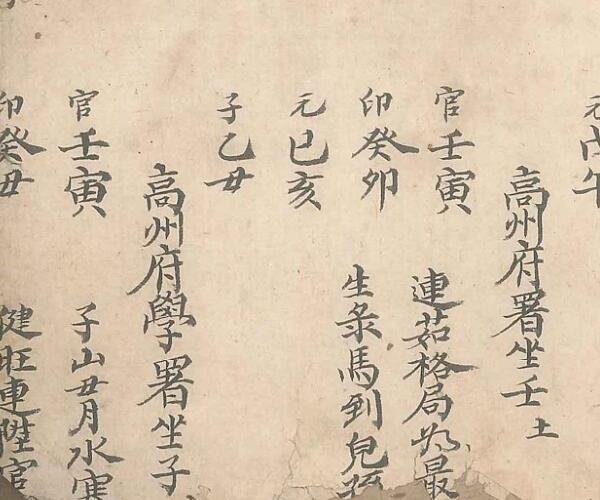 元戊午
高州府署坐壬土
官壬寅 連茹格局為最
印癸卯 生彔馬到兒孫
元巳亥
子乙丑
高州府學署坐子
官壬寅 子山丑月水寒
印癸丑 健旺連陞官